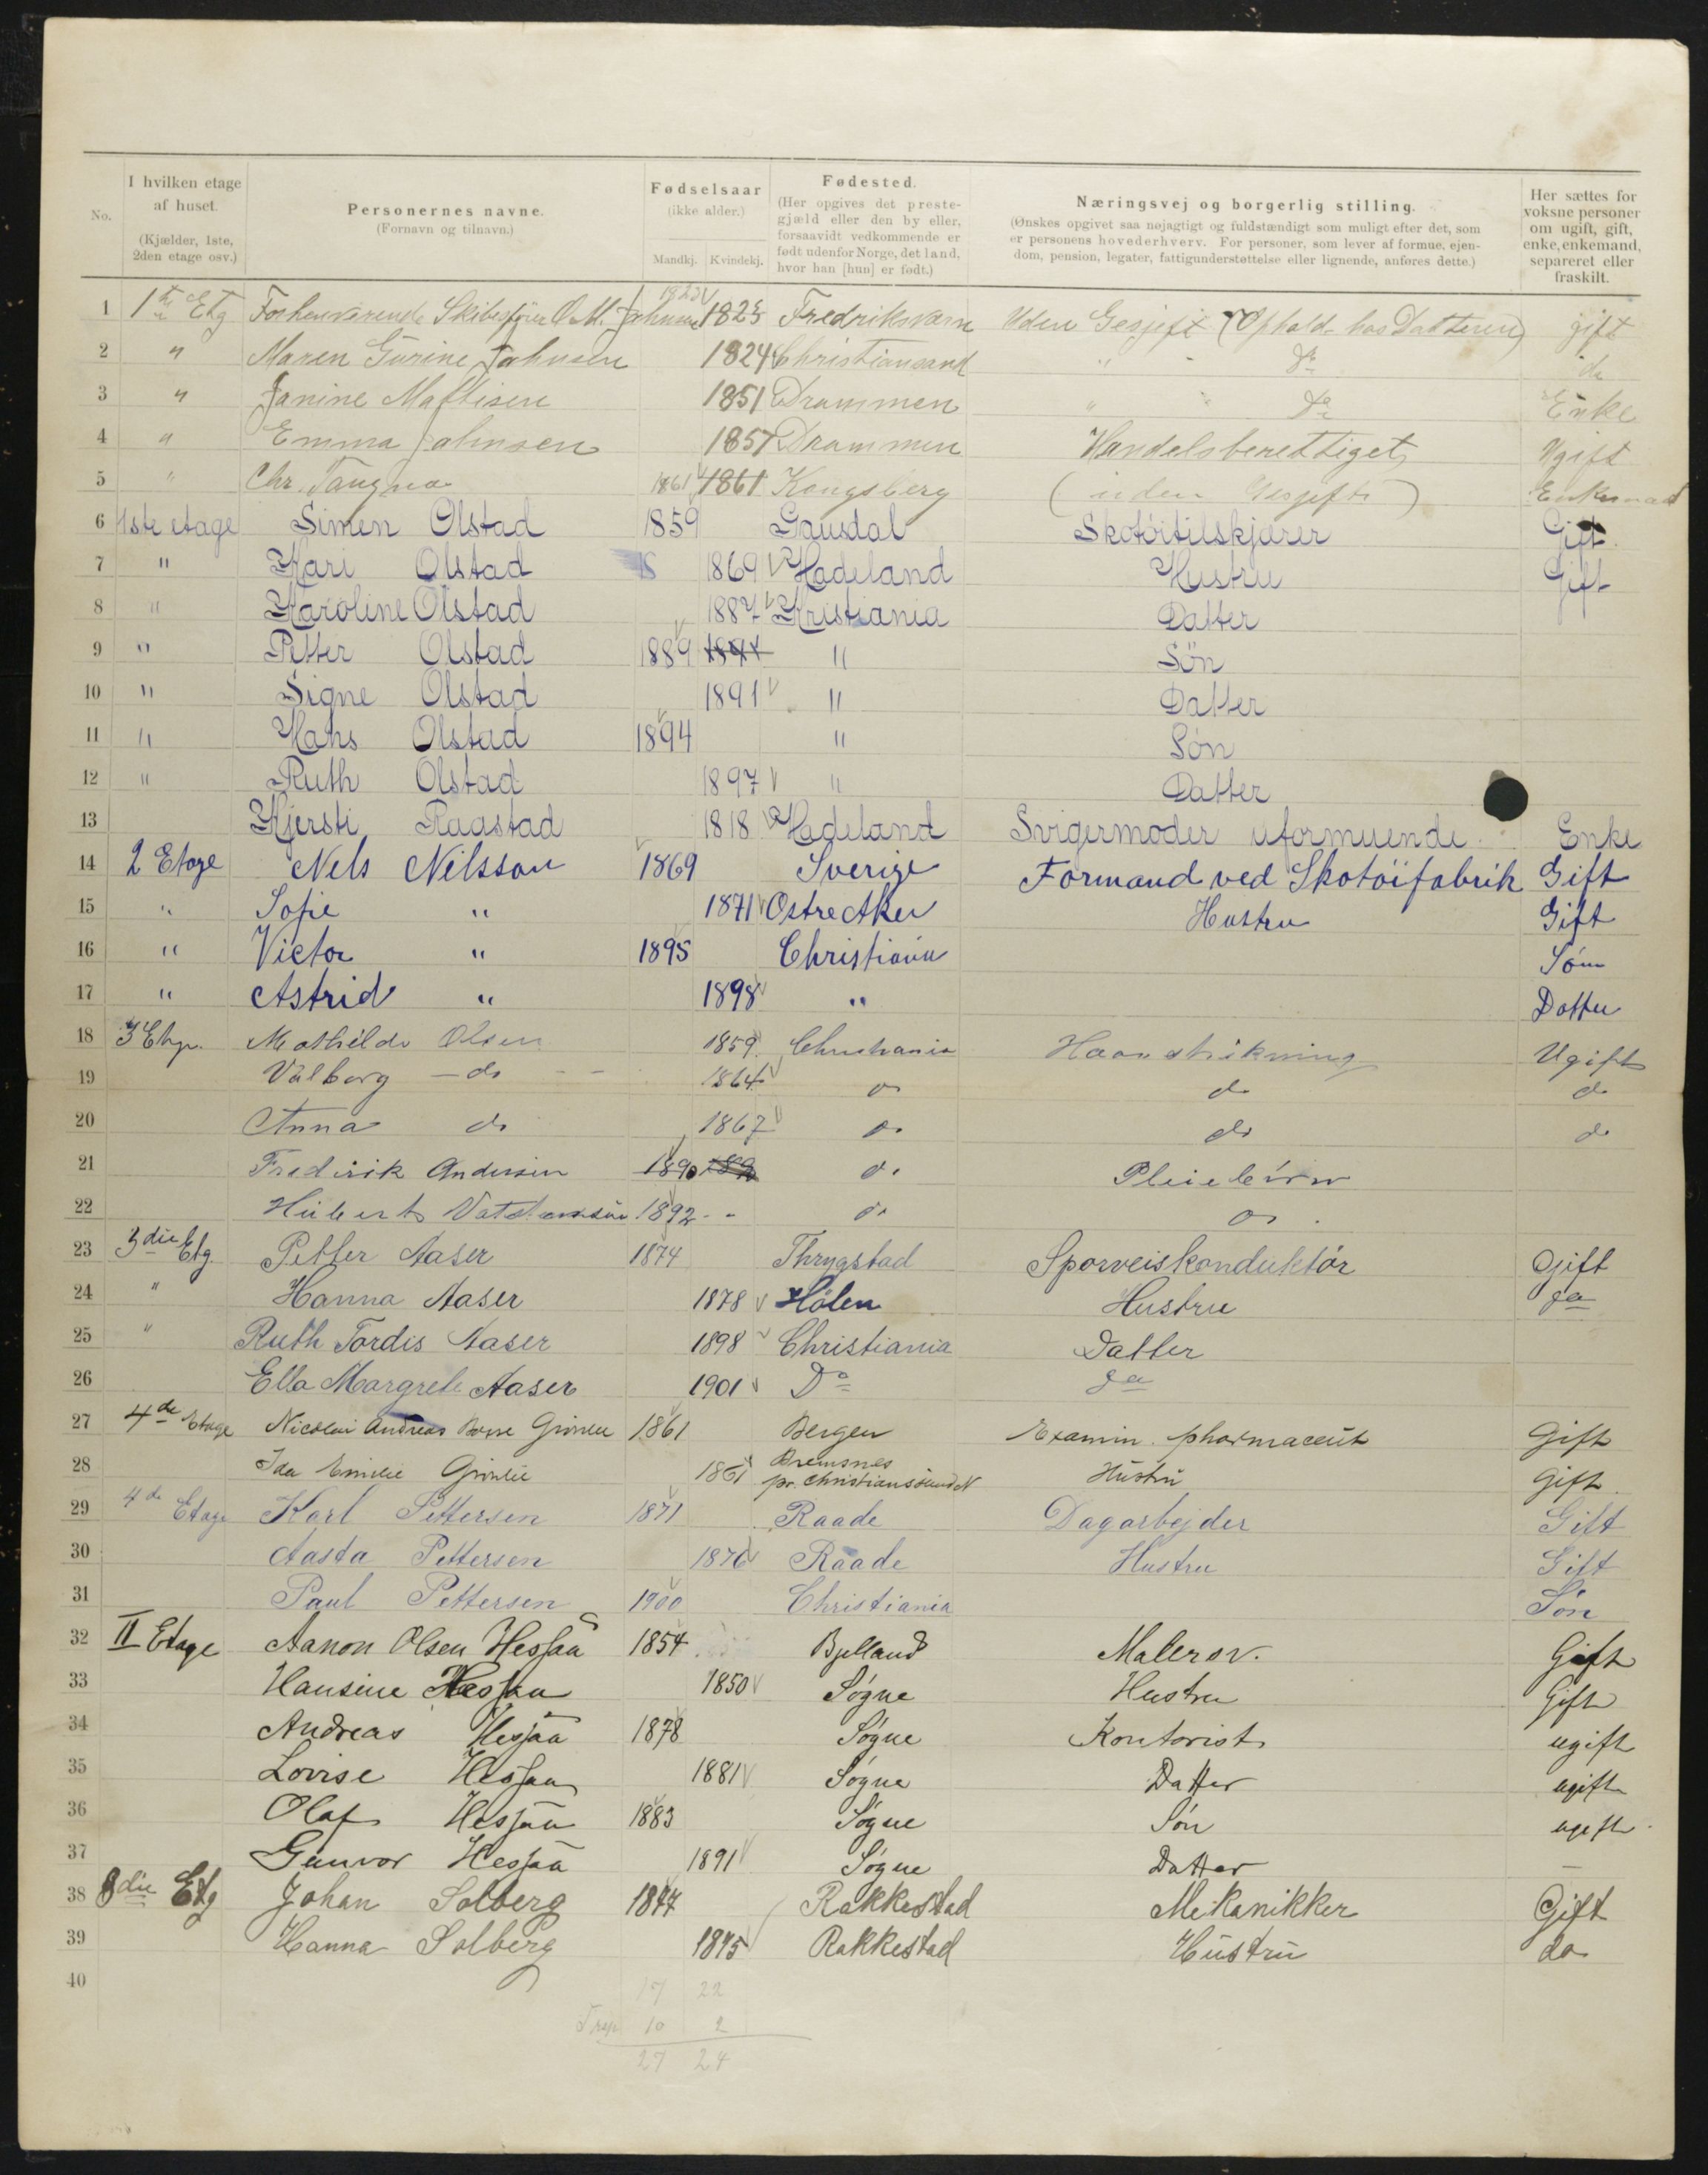 No.
I hvilken etage af huset. (Kjælder, 1ste, 2den etage osv.)
Personernes navne. (Fornavn og tilnavn.)
Fødselsaar (ikke alder.) Mandkj. Kvindekj.
Fødested. (Her opgives det preste-gjæld eller den by eller, forsaavidt vedkommende er født udenfor Norge, det land, hvor han [hun] er født.)
Næringsvej og borgerlig stilling. (Ønskes opgivet saa nøjagtigt og fuldstændigt som muligt efter det, som er personens hovederhverv. For personer, som lever af formue, ejendom, pension, legater, fattigunderstøttelse eller lignende, anføres dette.)
Her sættes for voksne personer om ugift, gift, enke, enkemand, separeret eller fraskilt.
1 1ste Etg Forhenværende Skibsfører O. M. Johnsen 1825 1825 Fredriksværn Uden Gesjeft (Ophold hos Datteren) gift
2 " Maren Gurine Johnsen 1824 Christiansand " " Do do
3 " Janine Mathisen 1851 Drammen " " Do Enke
4 " Emma Johnsen 1857 Drammen Handelsberettiget Ugift
5 " Chr. Tangna 1861 1861 Kongsberg (uden Gesjeft) Enkemand
6 1ste etage Simen Olstad 1859 Gausdal Skotøitilskjærer Gift.
7 " Kari Olstad 18 1869 Hadeland Hustru Gift
8 " Karoline Olstad 1887 Kristiania Datter
9 " Petter Olstad 1889 1891 " Søn
10 " Signe Olstad 1891 " Datter
11 " Hans Olstad 1894 " Søn
12 " Ruth Olstad 1897 " Datter
13 Kjersti Raastad 1818 Hadeland Svigermoder uformuende Enke
14 2 Etage Nels Nilsson 1869 Sverige Formand ved Skotöifabrik Gift
15 " Sofie " 1871 Ostre Aker Hustru Gift
16 " Victor " 1895 Christiania Søn
17 " Astrid " 1898 " Datter
18 3 Etge. Mathilde Olsen 1859 Christiania Haandstrikning Ugift
19 Valborg - do - - 1864 do do do
20 Anna do 1867 do do do
21 Fredirik Andersen 1890 189 do Pleiebørn
22 Hubert 1892 - - do do
23 3die Etg. Petter Aaser 1874 Thrygstad Sporveiskonduktör Gift
24 " Hanna Aaser 1878 Hølen Hustru Ja
25 " Ruth Tordis Aaser 1898 Christiania Datter
26 Ella Margrete Aaser 1901 Do Ja
27 4de Etage Nicolai Andreas Grønlie 1861 Bergen Examin. pharmaceut Gift
28 Ida Emilie Grønlie 1861 Bremsnes pr. Christianssund N Hustru Gift.
29 4de Etage Karl Pettersen 1871 Raade Dagarbejder Gift
30 Aasta Pettersen 1876 Raade Hustru Gift
31 Paul Pettersen 1900 Christiania Søn
32 II Etage Aanon Olsen Hessaa 1854 Bjelland Malersv. Gift
33 Hansine Hessaa 1850 Søgne Hustru Gift
34 Andreas Hessaa 1878 Søgne Kontorist ugift
35 Lovise Hessaa 1881 Søgne Datter ugift
36 Olaf Hessaa 1883 Søgne Søn ugift
37 Gunvor Hessaa 1891 Søgne Datter -
38 3die Etg Johan Solberg 1877 Rakkestad Mekanikker Gift
39 Hanna Solberg 1875 Rakkestad Hustru do
40
17 22
10 2
27 24